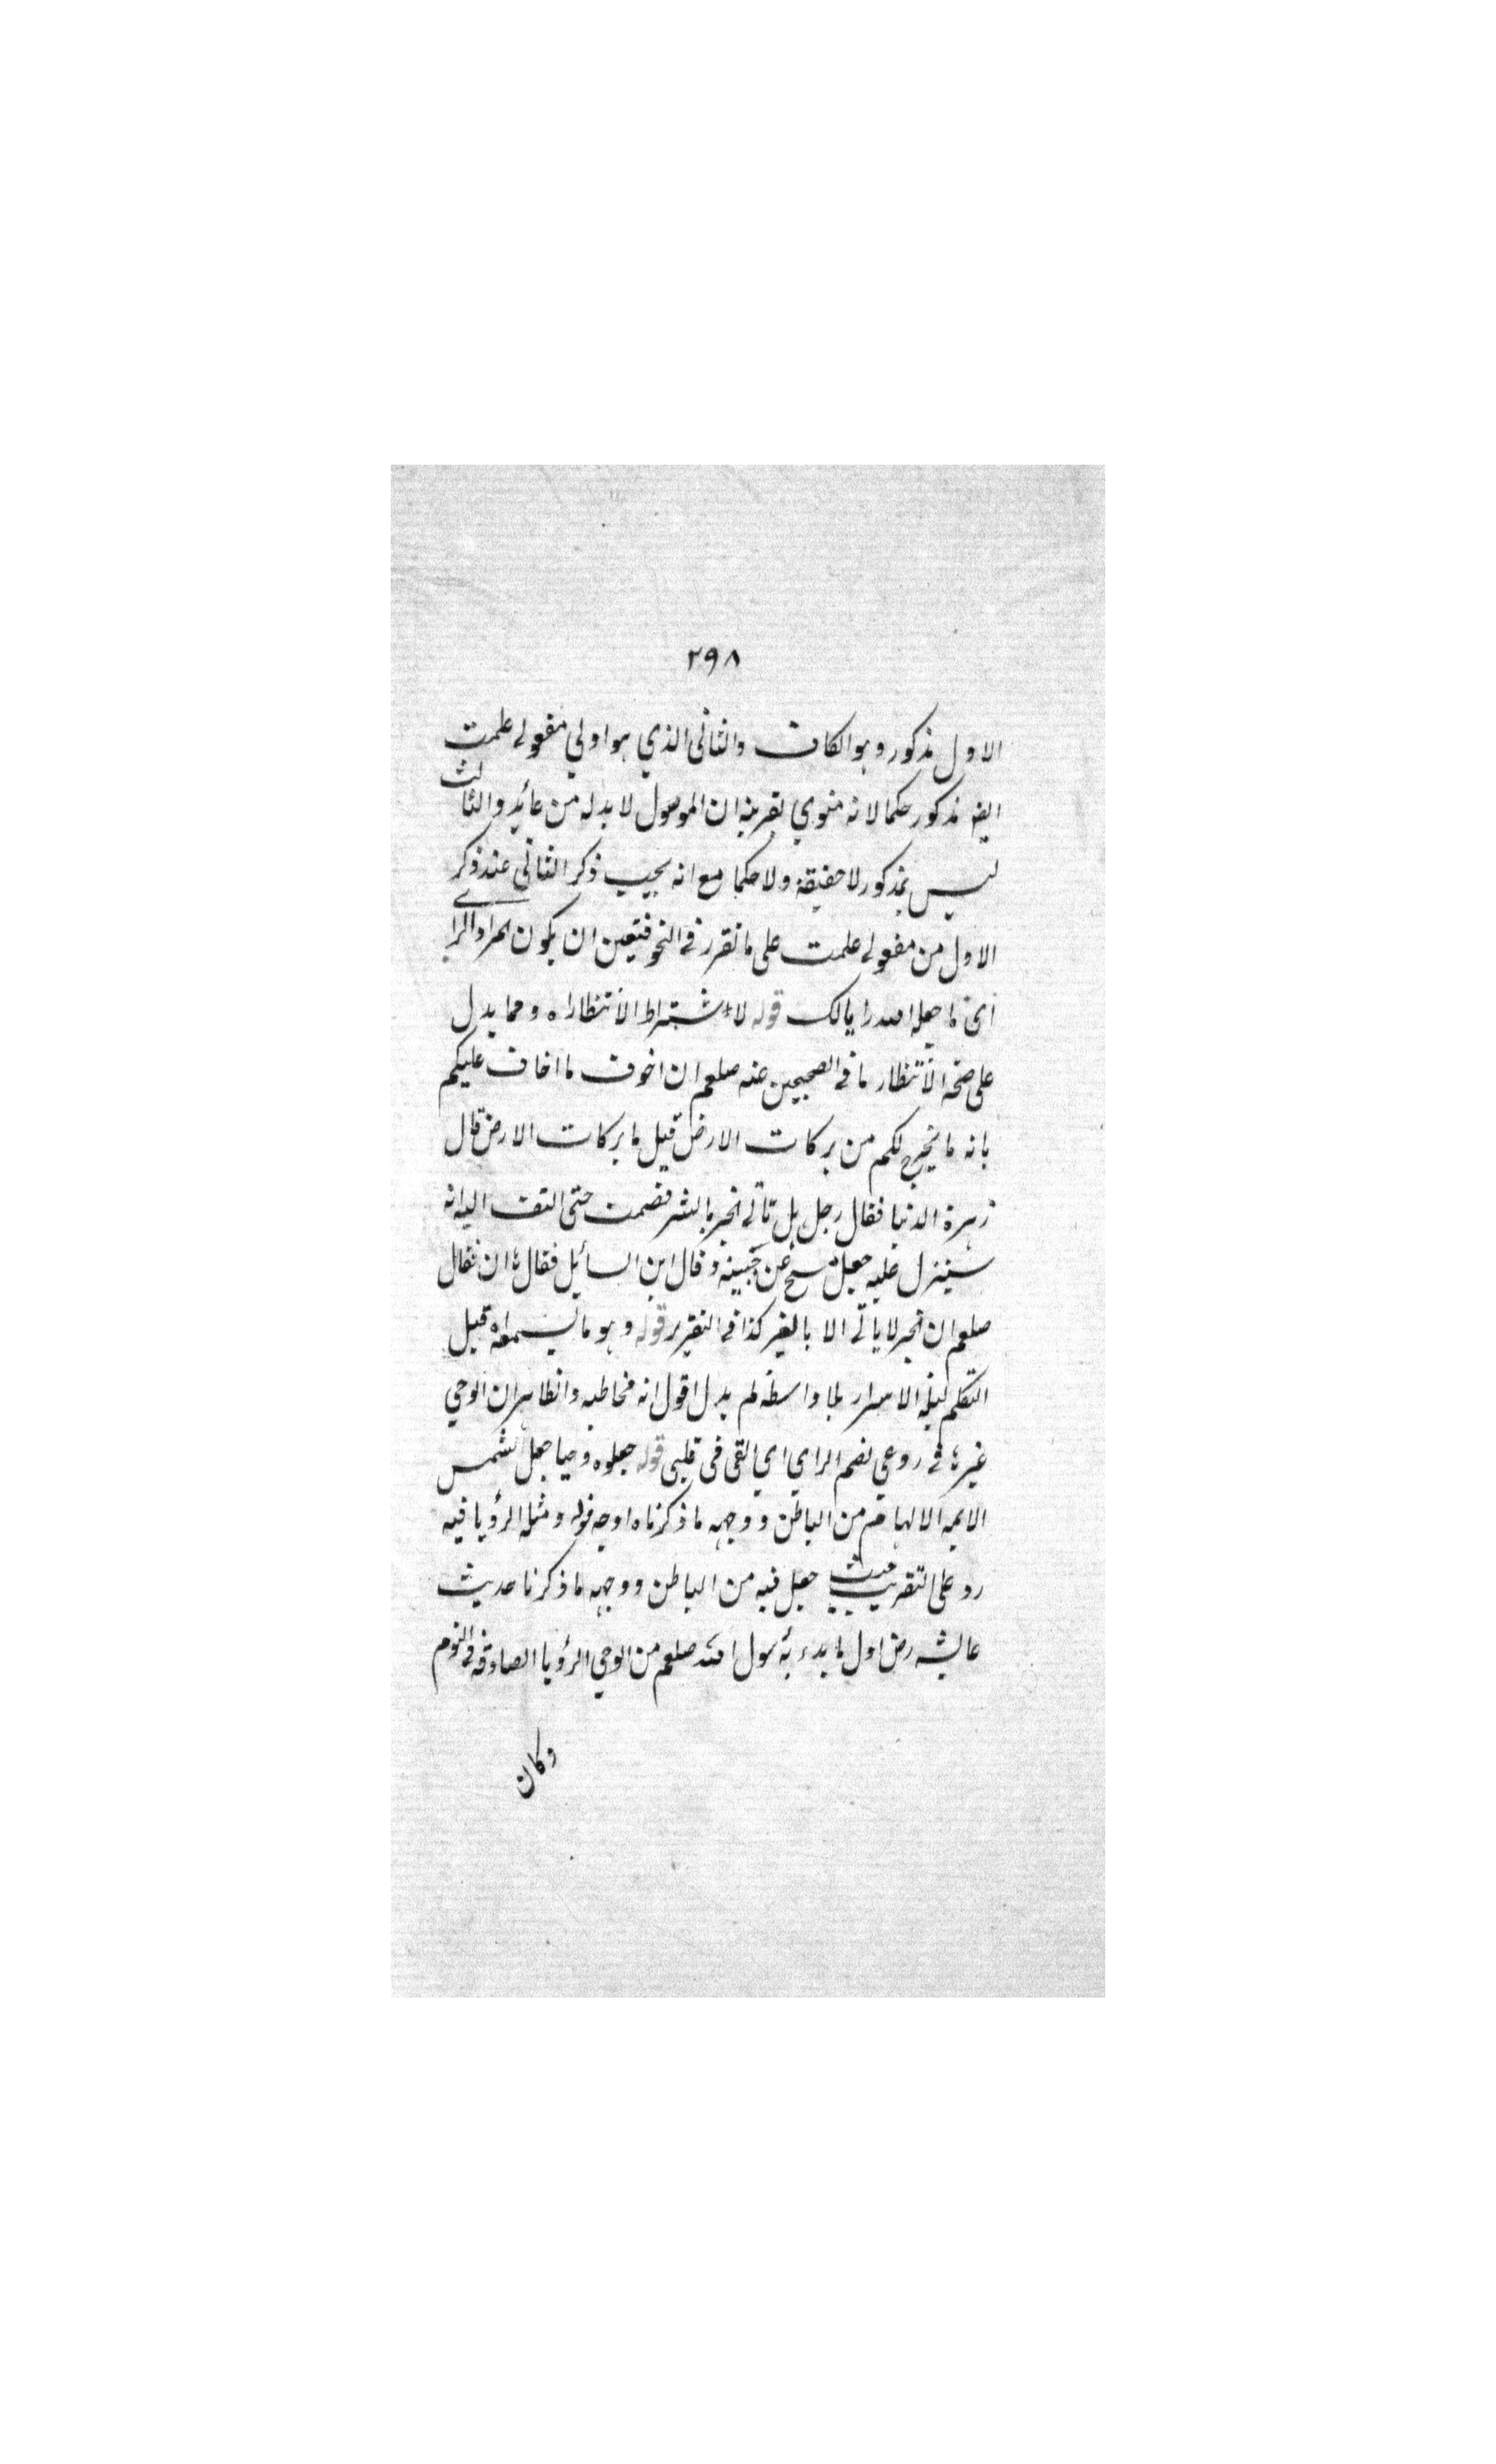 ٢٩٨
الاول مذكور وهو الكاف والثاني الذي هو اولي مفعولي علمت
ايضا مذكور حكما لانه منوي بقرينة ان الموصول لا بد له من عائد والثالث
ليس بمذكور لا حقيقة ولا حكما مع انه يجب ذكر الثاني عند ذكر
الاول من مفعولي علمت على ما تقرر في النحو فتعين ان يكون المراد الراي
اي ما جعله الله رايا لك قوله لاشتراط الانتظار اه ومما يدل
على صحة الانتظار ما في الصحيحين عنه صلعم ان اخوف ما اخاف عليكم
بانه ما يخرج لكم من بركات الارض قيل ما بركات الارض قال
زهرة الدنيا فقال رجل هل تأتي الخير بالشر فصمت حتى التفت اليه انه
سينزل عليه جعل يمسح عن جبينه وقال اين السائل فقال انا فقال
صلعم ان الخير لا ياتي الا بالخير كذا في التقرير قوله وهو ما يسمعه قبل
التكلم ليلة الاسرار بلا واسطة لم يدل اقول انه مخاطبة والظاهر ان الوحي
غير في روعي بضم الراي اي القى في قلبي قوله جعلوه وحيا جعل الشمس
الايمة الالهام من الباطن ووجهه ما ذكرناه اوجه قوله ومثله الرؤيا فيه
رد على التقريب حيث جعل فيه من الباطن ووجهه ما ذكرنا حديث
عايشه رض اول ما بدء به رسول الله صلعم من الوحي الرؤيا الصادقة في النوم
وكان